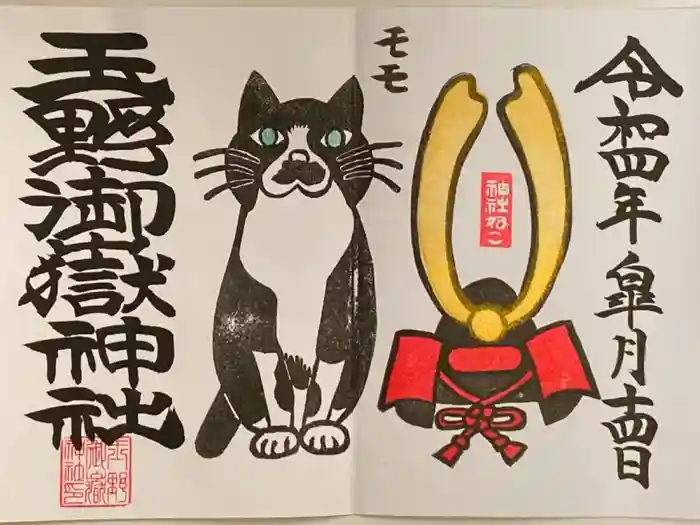 令和四年皐月十四日
モモ
神社ねこ
玉野御嶽神社
玉野
御嶽
神社印